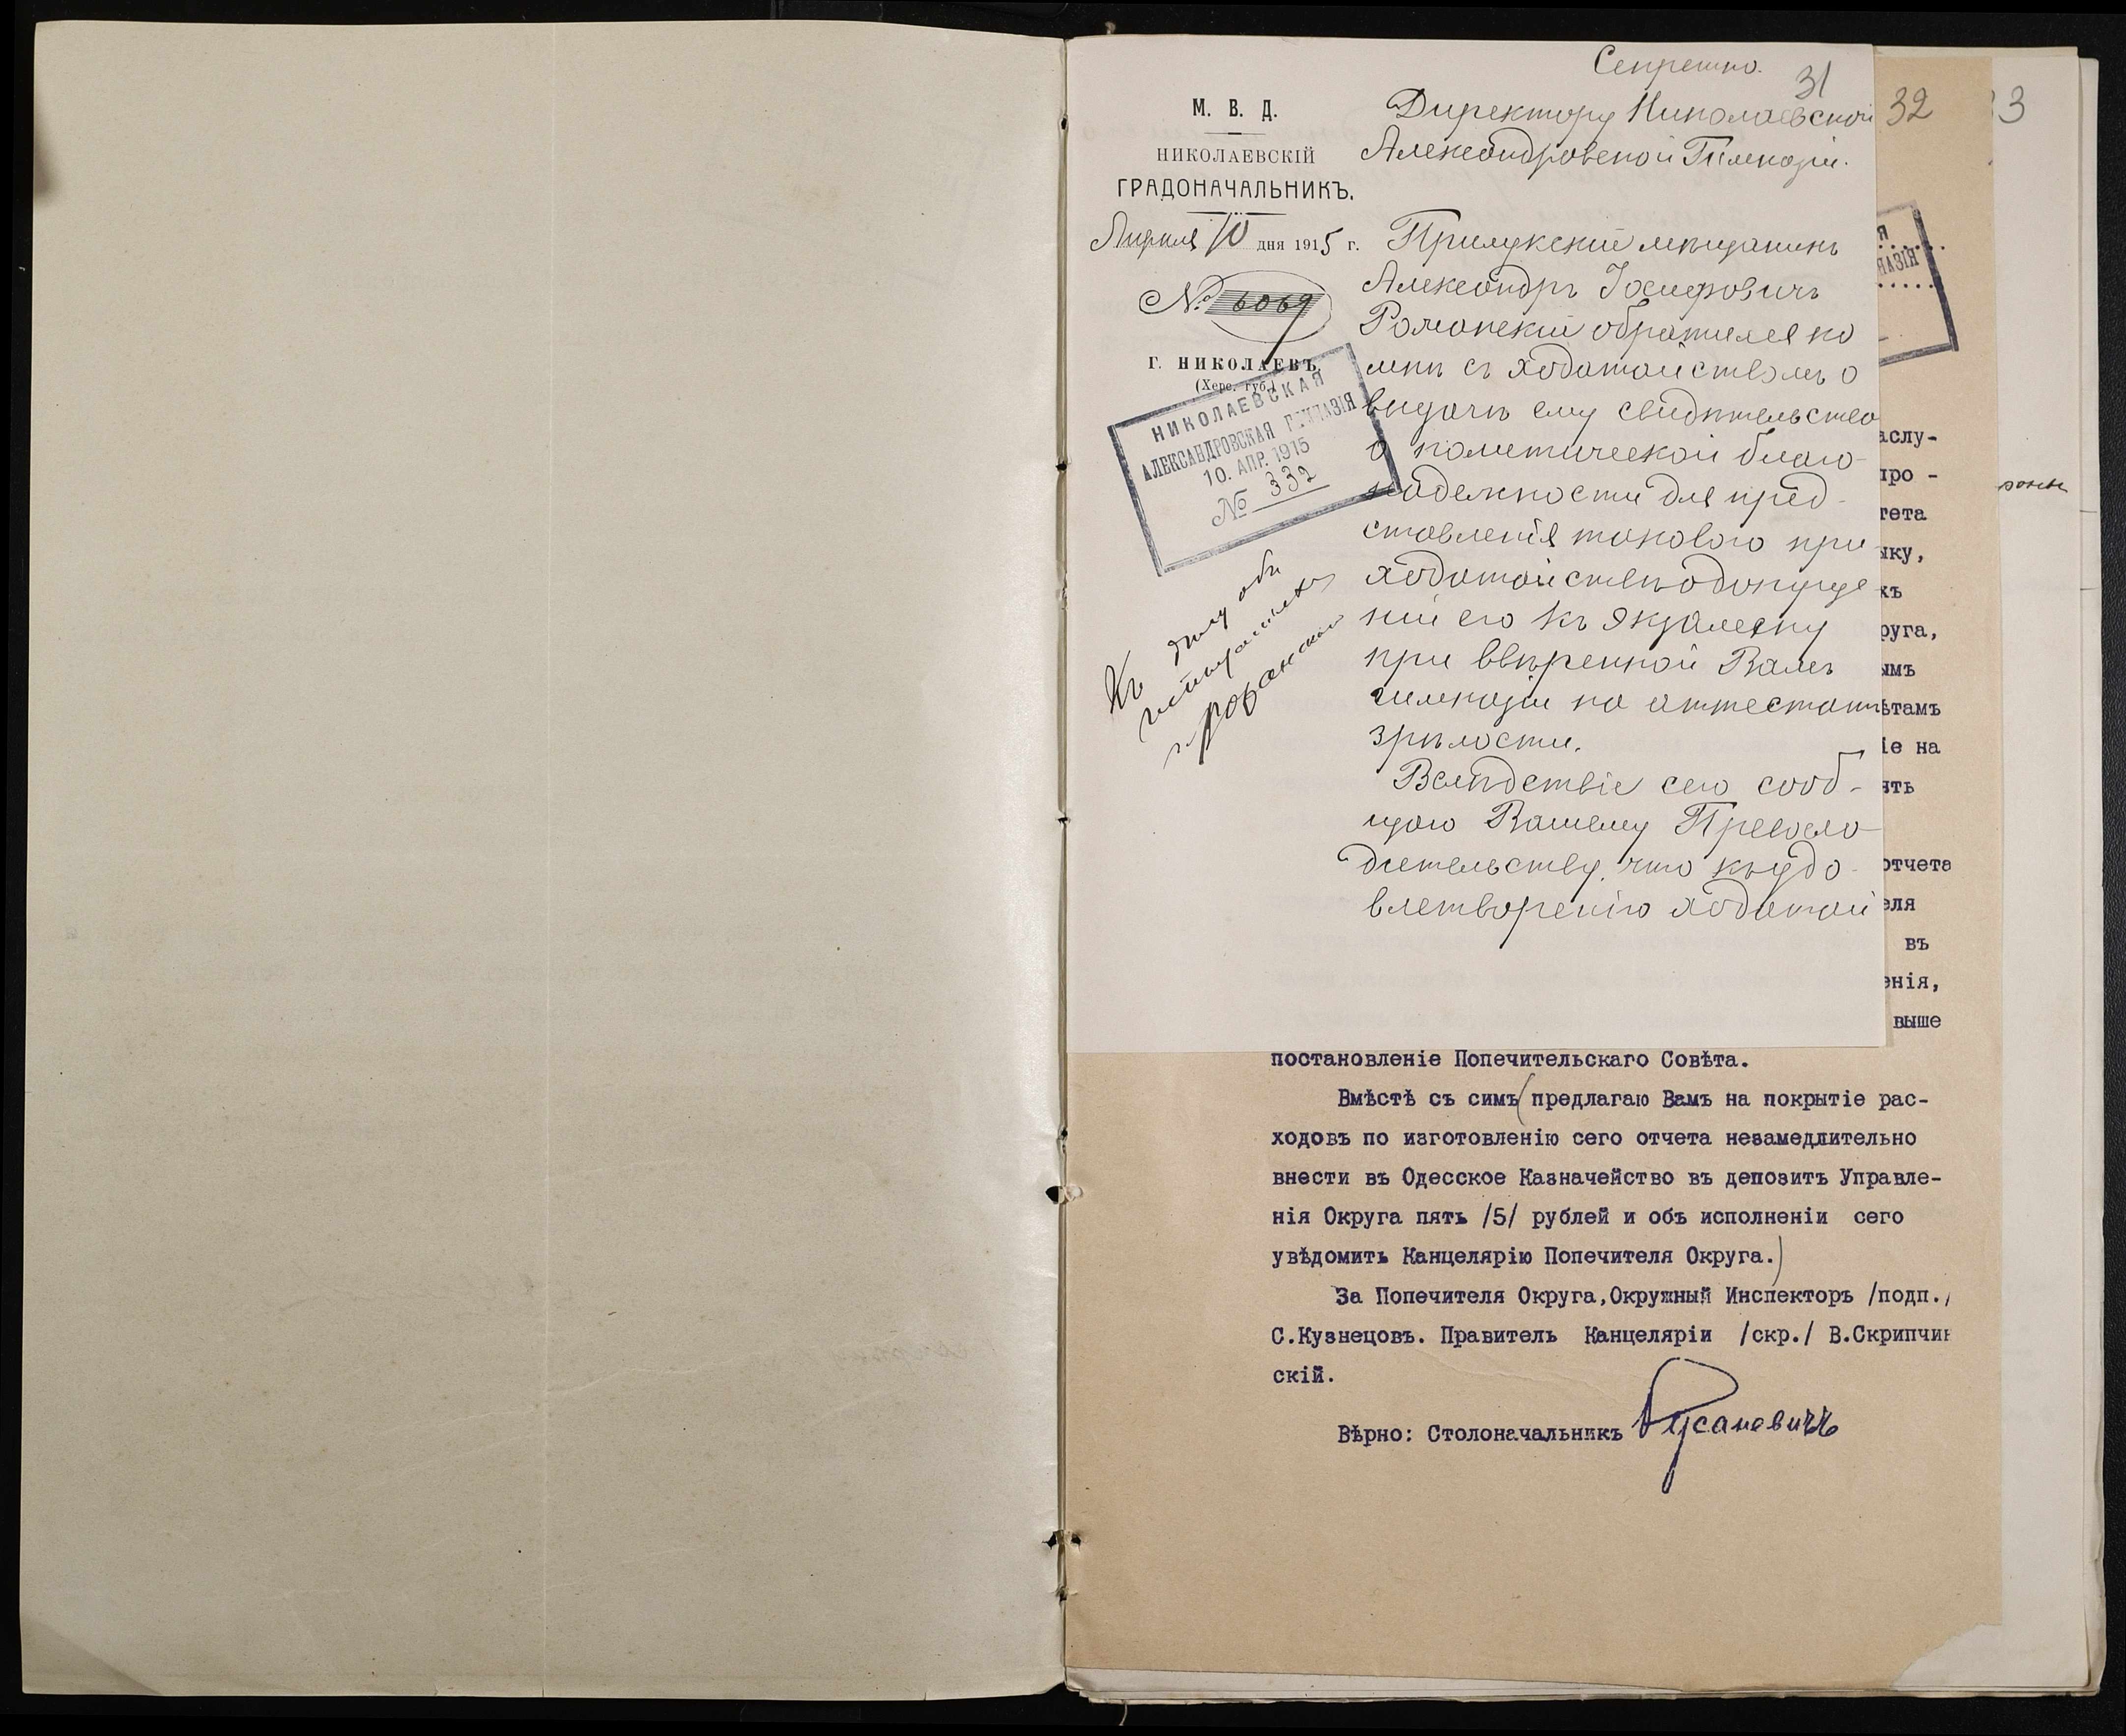 Секретно.
31
М. В. Д.
НИКОЛАЕВСКІЙ
ГРАДОНАЧАЛЬНИКЪ.
Апрѣля 10 дня 1915 г.
№ 6069
Г. НИКОЛАЕВЪ.
(Херс. губ.)
НИКОЛАЕВСКАЯ
АЛЕКСАНДРОВСКАЯ ГИМНАЗІЯ
10. АПР. 1915
№ 332
Къ дѣлу объ
испытаніяхъ
Директору Николаевской
Александровской Гимназіи.
Прилукскій мѣщанинъ
Александръ Іосифовичъ
обратился ко
мнѣ съ ходатайствомъ о
выдачѣ ему свидѣтельства
о политической благо-
надежности для пред-
ставленія такового при
ходатайствѣ о допуще
ніи его къ экзамену
при ввѣренной Вамъ
гимназіи на аттестатъ
зрѣлости.
Вслѣдствіе сего сооб-
щаю Вашему Превосхо-
дительству, что къ удо-
влетворенію ходатай
32
3
Я
НАЗІЯ
аслу-
про -
тета
ыку,
хъ
руга,
ымъ
ѣтамъ
іе на
ять
отчета
еля
въ
енія,
выше
постановленіе Попечительскаго Совѣта.
Вмѣстѣ съ симъ предлагаю Вамъ на покрытіе рас-
ходовъ по изготовленію сего отчета незамедлительно
внести въ Одесское Казначейство въ депозитъ Управле-
нія Округа пять /5/ рублей и объ исполненіи сего
увѣдомить Канцелярію Попечителя Округа.
За Попечителя Округа,Окружный Инспекторъ /подп./
С.Кузнецовъ. Правитель Канцеляріи /скр./ В.Скрипчин
скій.
Вѣрно: Столоначальникъ Русаневичъ